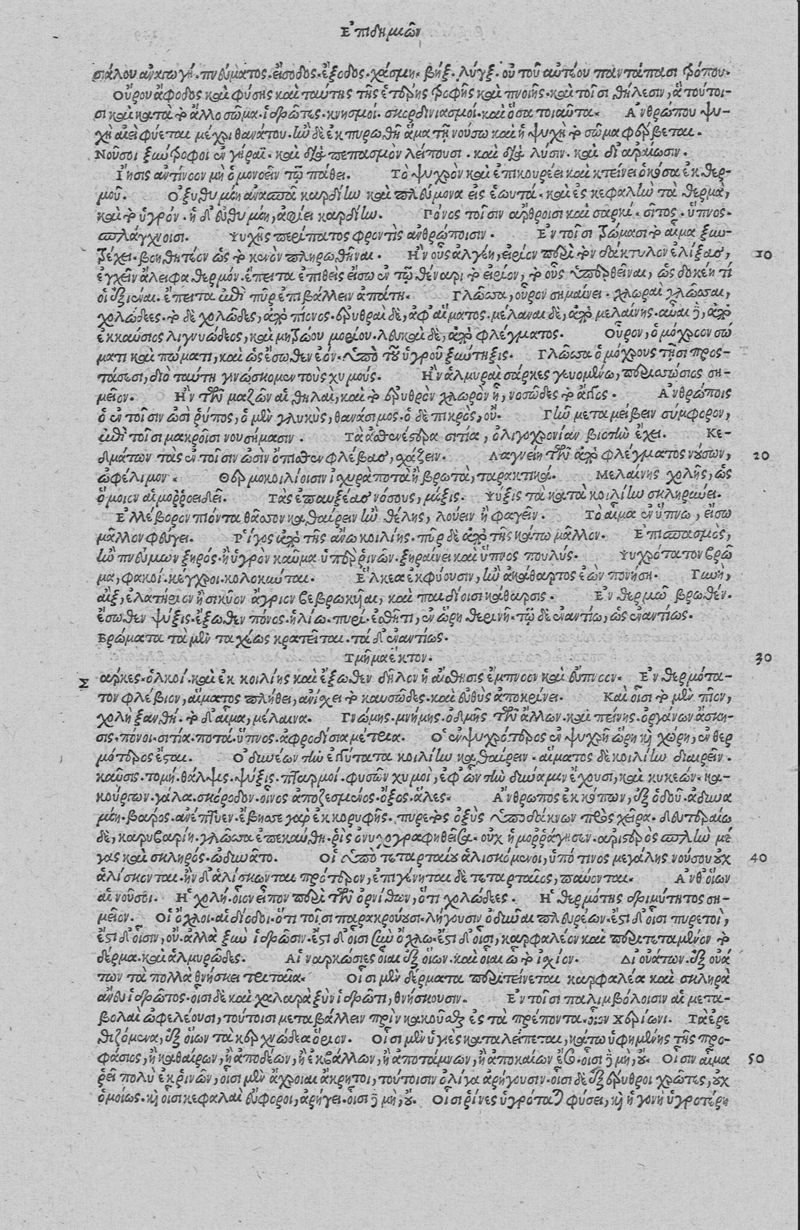 Ἐπιδημιῶν
σιάλου ἀναγωγή. πνεύματος. εἴσοδος. ἔξοδος. χάσμη. βήξ. λύγξ. οὐ τοῦ αὐτέου πανταπάσι τρόπου.
Οὔρου ἄφοδος καὶ φύσης καὶ ταύτης τῆς ἑτέρης τροφῆς καὶ πνοιῆς. καὶ τοῖσι θήλεσιν, ἃ τούτοι-
σι καὶ κατὰ τὸ ἄλλο σῶμα. ἱδρῶτες. κνησμοί. σκορδινιασμοὶ καὶ ὅσα τοιαῦτα. Ἀνθρώπου ψυ-
χὴ αἰεὶ φύεται μέχρι θανάτου. ἢν δὲ ἐκπυρωθῇ ἅμα τῇ νούσῳ καὶ ἡ ψυχὴ τὸ σῶμα φέρβεται.
Νοῦσοι ξύντροφοι ἐν γήραϊ. καὶ διὰ πεπασμὸν λείπουσι. καὶ διὰ λύσιν. καὶ δι' ἀραίωσιν.
Ἴησις ἀντίνοον μὴ ὁμονοεῖν τῷ πάθει. Τὸ ψυχρὸν καὶ ἐπικουρέει καὶ κτείνει ὁκόσα ἐκ θερ-
μοῦ. Ὀξυθυμίη ἀνασπᾷ καρδίην καὶ πλεύμονα εἰς ἑωυτά. καὶ ἐς κεφαλὴν τὰ θερμὰ,
καὶ τὸ ὑγρόν. ἡ δ' εὐθυμίη, ἀφίει καρδίην. Πόνος τοῖσιν ἄρθροισι καὶ σαρκὶ. σῖτος. ὕπνος.
σπλάγχνοισι. Ψυχῆς περίπατος φροντὶς ἀνθρώποισιν. Ἐν τοῖσι τρώμασι τὸ αἷμα ξυν-
τρέχει. βοηθητέον ὡς τὸ κενὸν πληρωθῆναι. Ἢν οὖς ἀλγέῃ, εἰρίον περὶ τὸν δάκτυλον ἑλίξας, 10
ἐγχεῖν ἄλειφα θερμόν. ἔπειτα ἐπιθεὶς εἴσω ἐν τῷ θέναρι τὸ εἰρίον, τὸ οὖς ὑπερθεῖναι, ὡς δοκέῃ τί
οἱ ἐξιέναι. ἔπειτα ἐπὶ πῦρ ἐπιβάλλειν ἀπάτη. Γλῶσσα, οὖρον σημαίνει. χλωραὶ γλῶσσαι,
χολώδεες. τὸ δὲ χολῶδες, ἀπὸ πίονος. ἐρυθραὶ δὲ, ἀφ' αἵματος. μέλαιναι δὲ, ἀπὸ μελαίνης. αὖαι ἢ, ἀπὸ
ἐκκαύσιος λιγνυώδεος, καὶ μητρώου μορίου. λευκαὶ δὲ, ἀπὸ φλέγματος. Οὖρον, ὁμόχροον σώ
ματι καὶ πώματι, καὶ ὡς ἔσωθεν ἐόν. ὑπὸ τοῦ ὑγροῦ ξύντηξις. Γλῶσσα ὁμόχρους τῇσι προσ-
τάσεσι, διὸ ταύτῃ γινώσκομεν τοὺς χυμούς. Ἢν ἁλμυραὶ σάρκες γευομένῳ, περισσώσιος ση-
μεῖον. Ἢν τῶν μαζῶν αἱ θηλαὶ, καὶ τὸ ἐρυθρὸν χλωρὸν ᾖ, νοσῶδες τὸ ἄγγος. Ἀνθρώποις
ὁ ἐν τοῖσιν ὠσὶ ῥύπος, ὁ μὲν γλυκὺς, θανάσιμος. ὁ δὲ πικρὸς, οὔ. Γῆν μεταμείβειν σύμφορον,
ἐπὶ τοῖσι μακροῖσι νουσήμασιν. Τὰ ἀσθενέστερα σιτία, ὀλιγοχρονίαν βιοτὴν ἔχει. Κε-
δμάτων τὰς ἐν τοῖσιν ὠσὶν ὄπισθεν φλέβας, σχάζειν. Λαγνείη τῶν ἀπὸ φλέγματος νούσων, 20
ὠφέλιμον. Θερμοκοιλίοισιν ἰσχυρὰ ποτὰ ἢ βρωτὰ, ταρακτικά. Μελαίνης χολῆς, ὡς
ὅμοιον αἱμορροειδεῖ. Τὰς ἐπαυξέας νόσους, μίξις. Ψύξις τὰ κατὰ κοιλίην σκληραίνει.
Ἐλλέβορον πιόντα θᾶσσον καθαίρειν ἢν θέλῃς, λούειν ἢ φαγεῖν. Τὸ αἷμα ἐν ὕπνῳ, εἴσω
μᾶλλον φεύγει. Ῥῖγος ἀπὸ τῆς ἄνω κοιλίης. πῦρ δὲ ἀπὸ τῆς κάτω μᾶλλον. Ἐπισπασμὸς,
ἢν πνεύμων ξηρός. ἢ ὑγρὸν καῦμα ὑπὲρ ῥινῶν. ξηραίνει καὶ ὕπνος πουλύς. Ψυχρότατον βρῶ
μα, φακοί. κέγχροι. κολοκύνται. Ἕλκεα ἐκφύουσιν, ἢν ἀκάθαρτος ἐὼν πονήσῃ. Γυνὴ,
αἲξ, ἐλατήριον ἢ σικύον ἄγριον βεβρωκυῖαι, καὶ παιδίοισι κάθαρσις. Ἐν θερμῷ βρωθέν.
ἔσωθεν ψύξις. ἔξωθεν πόνος. ἡλίῳ. πυρί. ἐσθῆτι, ἐν ὥρῃ θερινῇ. τῷ δὲ ἐναντίῳ, ὡς ἐναντίως.
Βρώματα τὰ μὲν ταχέως κρατεῖται. τὰ δ' ἐναντίως.
Τμῆμα ἕκτον. 30
Σάρκες. ὁλκοί. καὶ ἐκ κοιλίης καὶ ἔξωθεν δῆλον ἡ αἴσθησις ἔμπνοον καὶ εὔπνοον. Ἐν θερμότα-
τον φλέβιον, αἵματος πλήθει, ἀνίσχει τὸ καυσῶδες. καὶ εὐθὺς ἀποκρίνει. Καὶ οἷσι τὸ μὲν πῖον,
χολὴ ξανθή. τὸ δ' αἷμα, μέλαινα. Γνώμης. μνήμης. ὀδμῆς τῶν ἄλλων. καὶ πείνης. ὀργάνων ἄσκη-
σις. πόνοι. σιτία. ποτά. ὕπνος. ἀφροδίσια μέτρια. Οἱ ἐν ψυχρότερος ἐν ψυχρῇ ὥρῃ καὶ χώρῃ, ἐν θερ
μότερος ἔσται. Ὀδυνέων τὴν ἐγγύτατα κοιλίην καθαίρειν. αἵματος δὲ κοιλίην διαιρεῖν.
καῦσις. τομή. θάλψις. ψύξις. πταρμοί. φυσῶν χυμοὶ, ἐφ' ὧν τὴν δύναμιν ἔχουσι, καὶ κυκεών. κα-
κούργων. γάλα. σκόροδον. οἶνος ἀποζεσμένος. ὄξος. ἅλες. Ἄνθρωπος ἐκ κόπων, ἐξ ὁδοῦ. ἀδυνα
μίη. βάρος. ἀνέπτυεν. ἔβησσε γὰρ ἐκ κορυφῆς. πυρετὸς ὀξὺς ὑποδάκνων πρὸς χεῖρα. δευτεραίῳ
δὲ, καρηβαρίη. γλῶσσα ἐπεκαύθη. ῥὶς ὄνυχι γραφηθεῖσα. οὐχ ᾑμορράγησεν. ἀριστερὸς σπλὴν μέ
γας καὶ σκληρὸς, ὠδυνᾶτο. Οἱ ὑπὸ τεταρταίου ἁλισκόμενοι, ὑπό τινος μεγάλης νούσου οὐχ 40
ἁλίσκονται. ἢν δ' ἁλίσκωνται πρότερον, ἐπιγένηται δὲ τεταρταῖος, παύονται. Ἀνθ' ὅιων
αἱ νοῦσοι. Ἡ χολή. οἷον εἶπον περὶ τῶν ὀρνίθων, ὅτι χολώδεες. Ἡ θερμότης δριμύτητος ση-
μεῖον. Οἱ ὄχλοι. αἱ δίοδοι. ὅτι τοῖσι παρακρούουσι. λήγουσιν ὀδύναι πλευρέων. ἔστι δ' οἷσι πυρετοὶ,
ἔστι δ' οἷσιν, οὔ. ἀλλὰ ξὺν ἱδρῶσιν. ἔστι δ' οἷσι σὺν ὄχλῳ. ἔστι δ' οἷσι, καρφαλέον καὶ περιτεταμένον τὸ
δέρμα. καὶ ἁλμυρῶδες. Αἱ ναρκώσιες οἷαι ἐξ ὅιων. καὶ οἷαι ᾧ τὸ ἰσχίον. Δι' οὐάτων. ἐξ οὐά
των τὰ πολλὰ θνήσκει τριταῖα. Οἷσι μὲν δέρματα περιτείνεται καρφαλέα καὶ σκληρὰ
ἄνευ ἱδρῶτος. οἷσι δὲ καὶ χαλαρὰ ξὺν ἱδρῶτι, θνήσκουσιν. Ἐν τοῖσι παλιμβόλοισιν αἱ μετα-
βολαὶ ὠφελέουσι, τούτοισι μεταβάλλειν πρὶν κακοῦσθαι ἐς τὰ πρέποντα. οἷον χερίωνι. Τὰ ἐρε
θιζόμενα, ἐξ ὅιων τὰ κερχνώδεα ὅριον. Οἷσι μὲν ὑγιὲς καταλείπεται, κάτω ὑφημένης τῆς προ-
φάσιος, ἢ καθαίρων, ἢ ἀποδέων, ἢ ἐκβάλλων, ἢ ἀποτάμνων, ἢ ἀποκαίων ἔστι. οἷσι δὲ μὴ, οὔ. Οἷσιν αἷμα 50
ῥεῖ πολὺ ἐκ ῥινῶν, οἷσι μὲν ἄχροιαι ἄκρητοι, τούτοισιν ὀλίγα ἀρήγουσιν. οἷσι δὲ ἐξέρυθροι χρῶτες, οὐχ
ὁμοίως. καὶ οἷσι κεφαλαὶ εὔφοροι, ἀρήγει. οἷσι δὲ μὴ, οὔ. Οἷσι ῥῖνες ὑγρόταται φύσει, καὶ ἡ γονὴ ὑγροτέρη